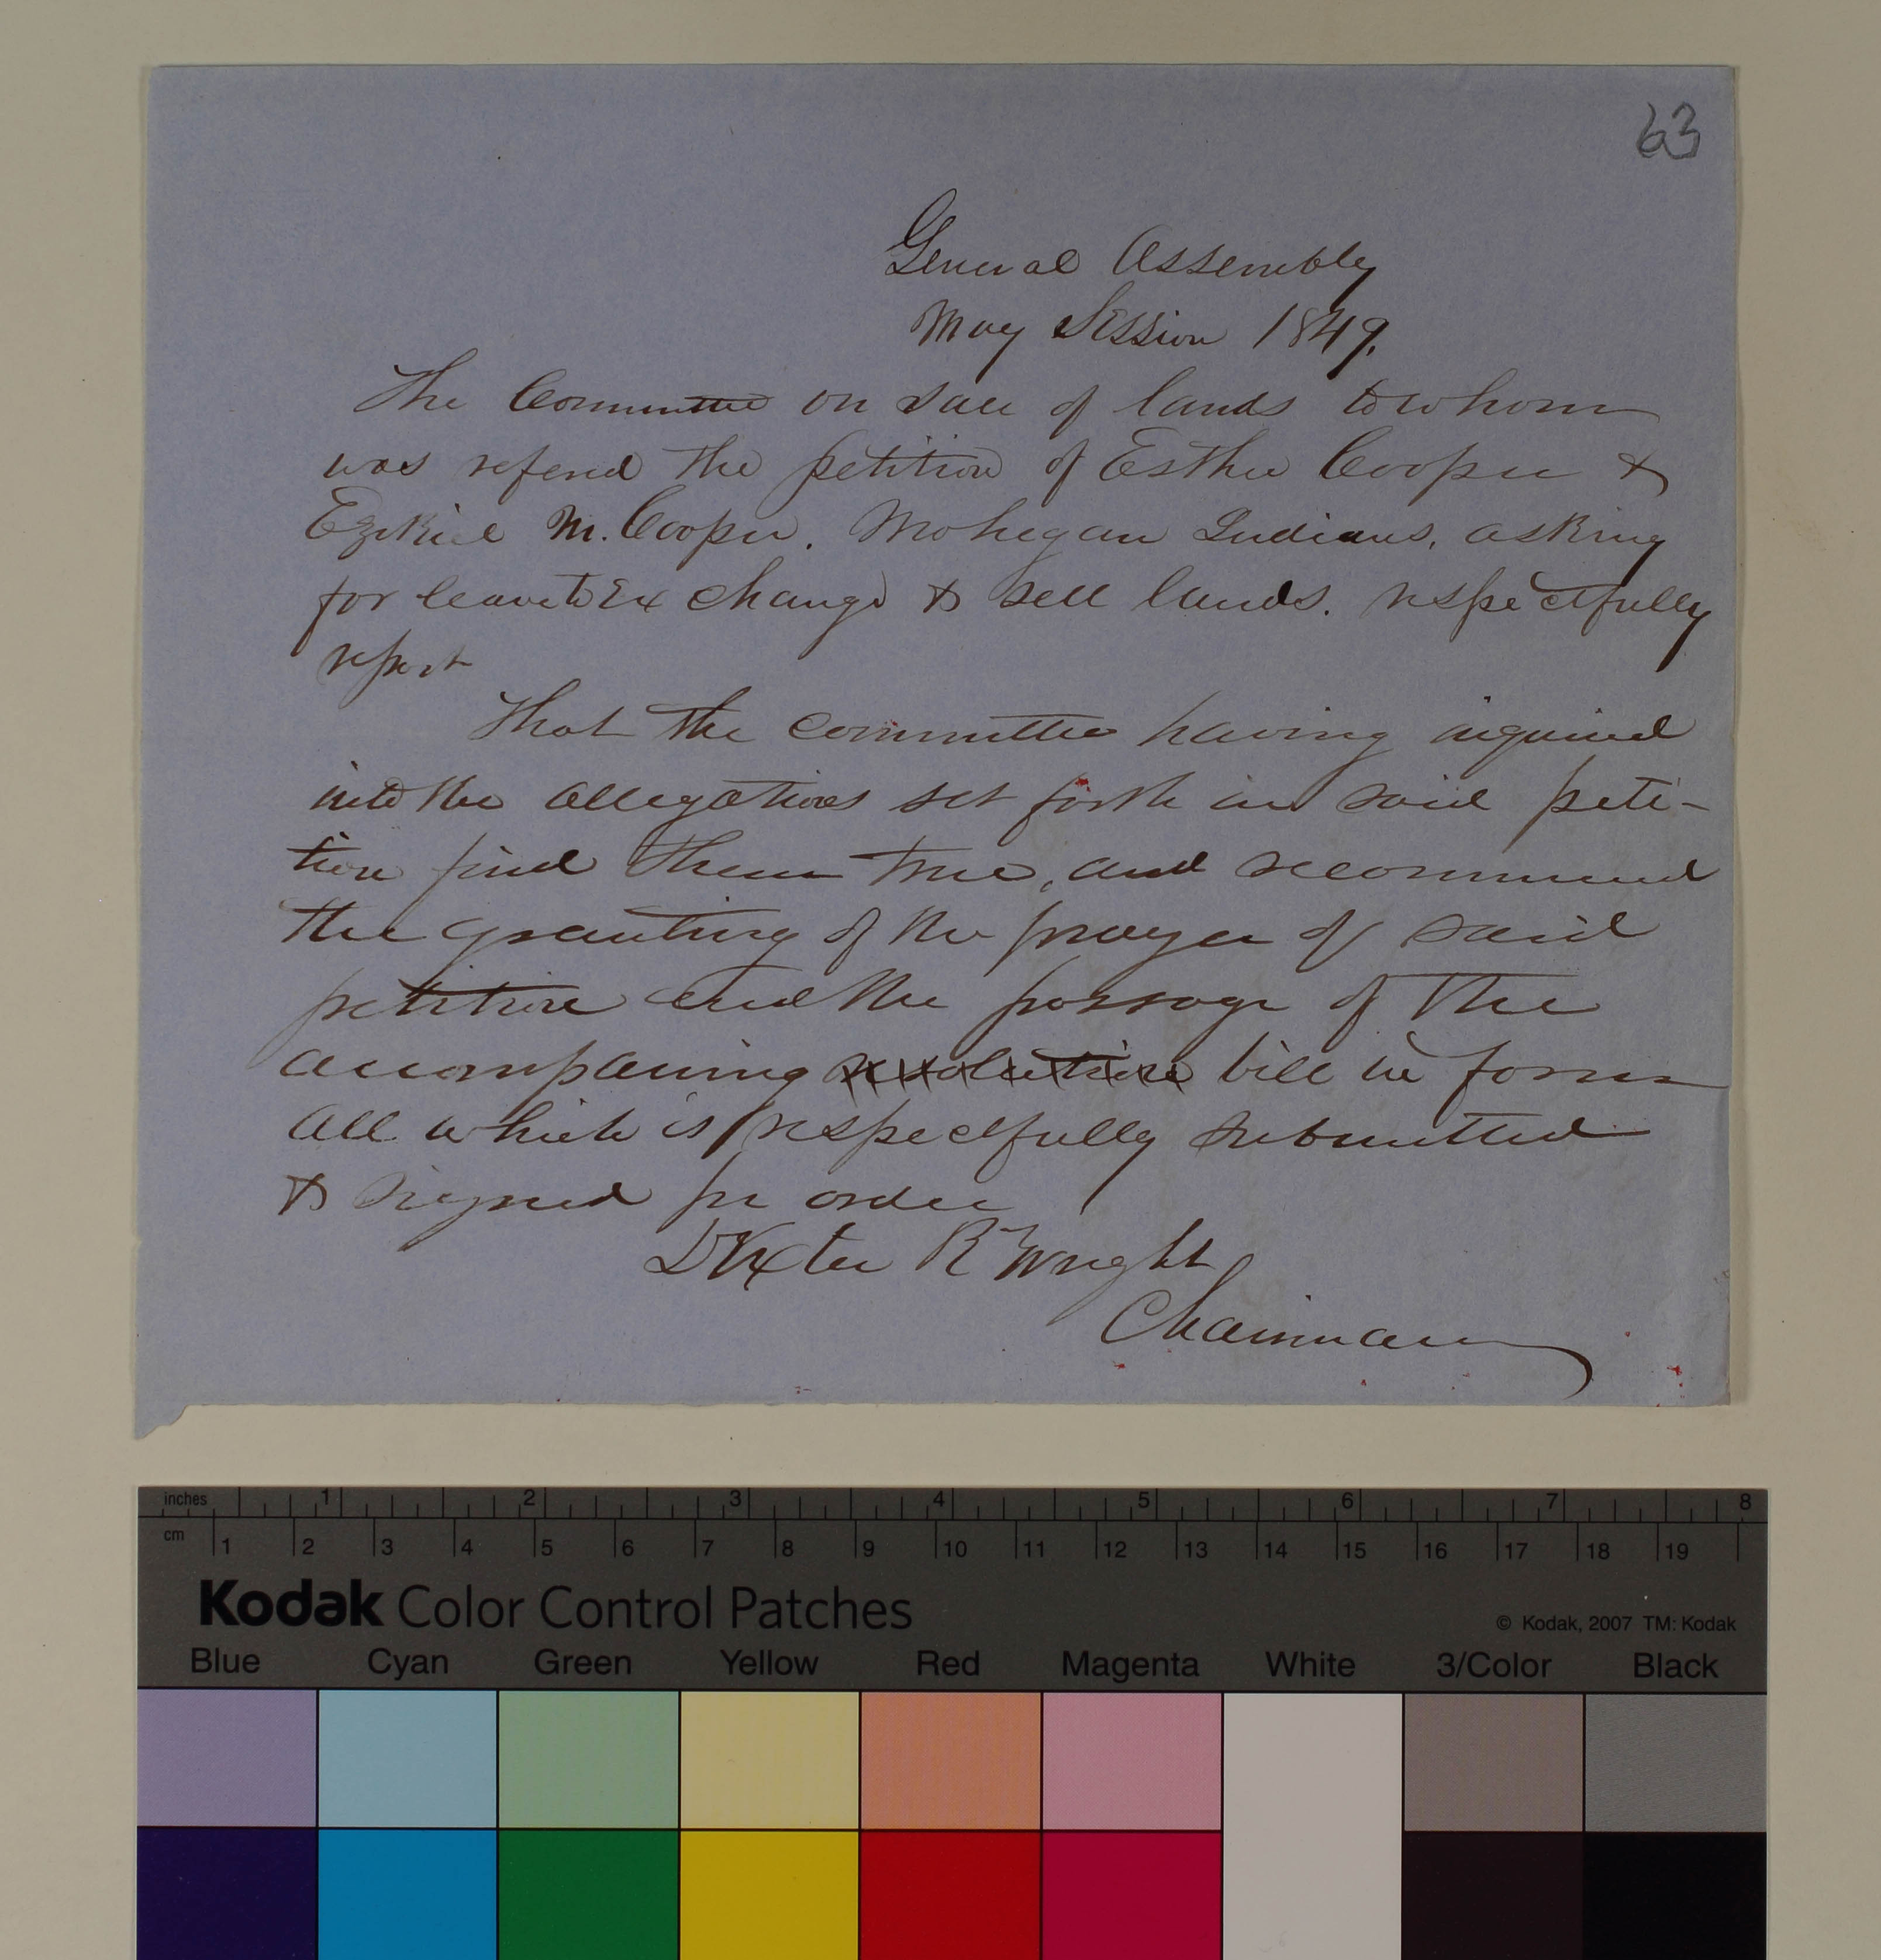 63
General Assembly
May Session 1849.
The Committee on sale of lands to whom
was referred the petition of Esther Cooper &
Ezekiel M. Cooper. Mohegan Indians, asking
for leave to Exchange & sell lands. respectfully
report
That the committee having inquired
into the allegations set forth in said peti-
tion find them true, and recommend
the granting of the prayer of said
petition and the passage of the
accompaning resolution bill in form
All which is respectfully submitted
& signed per order
Dexter R Wright
Chairman
inches 1 2 3 4 5 6 7 8
cm 1 2 3 4 5 6 7 8 9 10 11 12 13 14 15 16 17 18 19
Kodak Color Control Patches
© Kodak, 2007 TM: Kodak
Blue Cyan Green Yellow Red Magenta White 3/Color Black